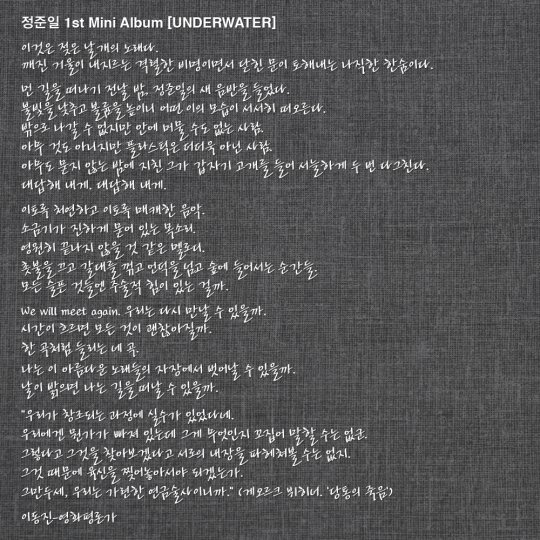 정준일 1st Mini Album [UNDERWATER]
이것은 젖은 날개의 노래다.
깨진 거울이 내지르는 격렬한 비명이면서 닫힌 문이 토해내는 나직한 한숨이다.
먼 길을 떠나기 전날 밤, 정준일의 새 음반을 들었다.
불빛을 낮추고 볼륨을 높이니 어떤 이의 모습이 서서히 떠오른다.
밖으로 나갈 수 없지만 안에 머물 수도 없는 사람.
아무 것도 아니지만 플라스틱은 더더욱 아닌 사람.
아무도 묻지 않는 밤에 지친 그가 갑자기 고개를 들어 서늘하게 두 번 다그친다.
대답해 내게. 대답해 내게.
이토록 처연하고 이토록 매캐한 음악.
소금기가 진하게 묻어 있는 목소리.
영원히 끝나지 않을 것 같은 멜로디.
촛불을 끄고 갈대를 꺾고 언덕을 넘고 숲에 들어서는 순간들.
모든 슬픈 것들엔 주술적 힘이 있는 걸까.
We will meet again. 우리는 다시 만날 수 있을까.
시간이 흐르면 모든 것이 괜찮아질까.
한 곡처럼 들리는 네 곡.
나는 이 아름다운 노래들의 자장에서 벗어날 수 있을까.
날이 밝으면 나는 길을 떠날 수 있을까.
"우리가 창조되는 과정에 실수가 있었다네.
우리에겐 뭔가가 빠져 있는데 그게 무엇인지 꼬집어 말할 수는 없군.
그렇다고 그것을 찾아보겠다고 서로의 내장을 파헤쳐볼 수는 없지.
그것 때문에 육신을 찢어놓아서야 되겠는가.
그만두세, 우리는 가련한 연금술사이니까." (게오르크 뷔히너. '당통의 죽음')
이동진-영화평론가